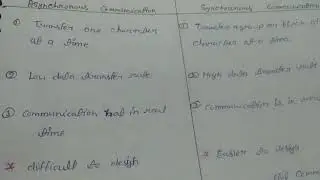 Asynchronous Communication
① Transfer one character
at a time
② Low data transfer rate
③ Communication in real
time
* difficult to design
Synchronous Communication
① Transfer group or block of
character at a time.
② High data transfer rate
③ Communication is in
* Easier to design